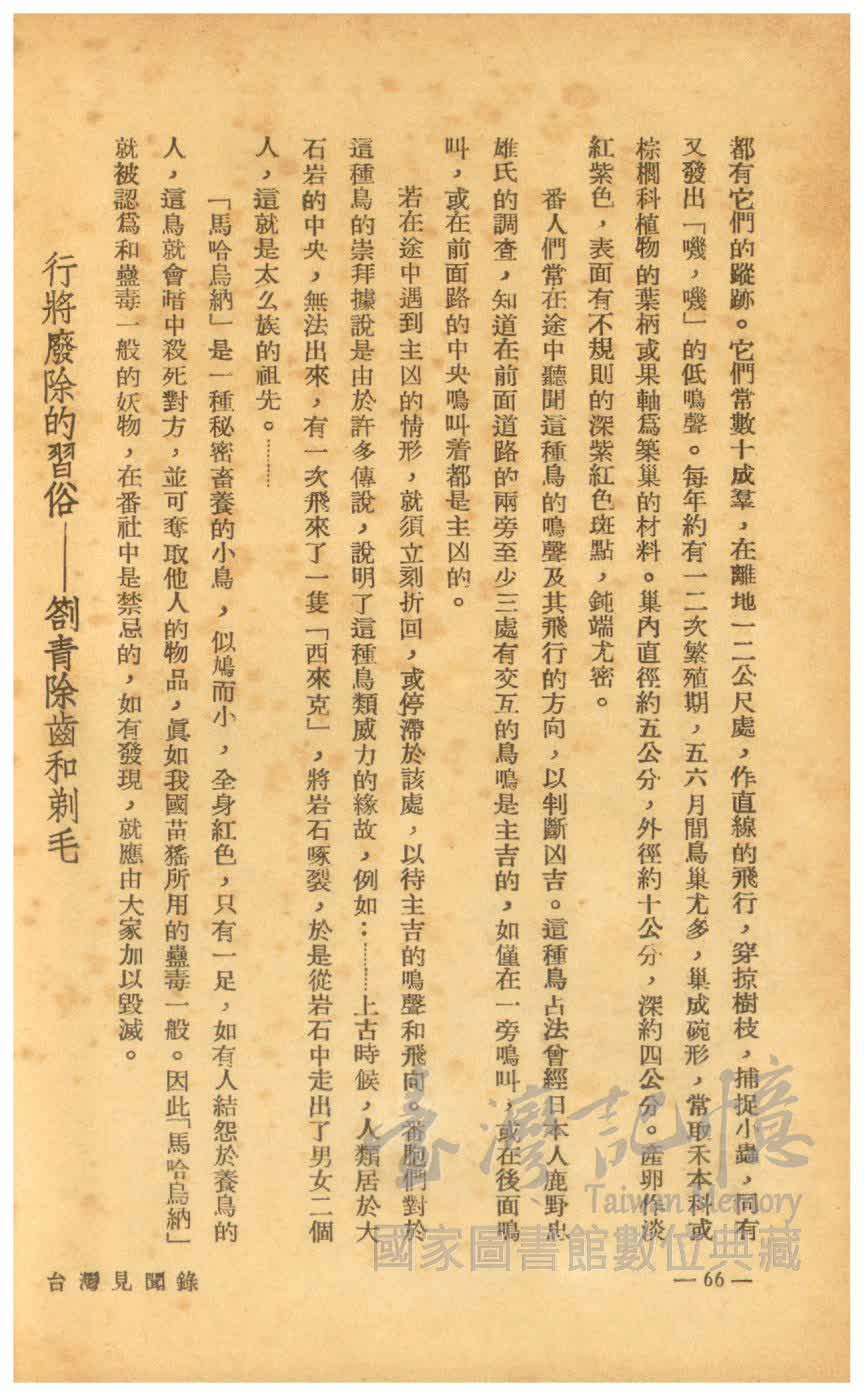 都有它們的蹤跡。它們常數十成羣，在離地一二公尺處，作直線的飛行，穿掠樹枝，捕捉小蟲，同有
又發出「嘰，嘰」的低鳴聲。每年約有一二次繁殖期，五六月間鳥巢尤多，巢成碗形，常取禾本科或
棕櫚科植物的葉柄或果軸爲築巢的材料。巢內直徑約五公分，外徑約十公分，深約四公分。產卵作淡
紅紫色，表面有不規則的深紫紅色斑點，鈍端尤密。
番人們常在途中聽聞這種鳥的鳴聲及其飛行的方向，以判斷凶吉。這種鳥占法曾經日本人鹿野忠
雄氏的調查，知道在前面道路的兩旁至少三處有交互的鳥鳴是主吉的，如僅在一旁鳴叫，或在後面鳴
叫，或在前面路的中央鳴叫着都是主凶的。
若在途中遇到主凶的情形，就須立刻折回，或停滯於該處，以待主吉的鳴聲和飛向。番胞們對於
這種鳥的崇拜據說是由於許多傳說，說明了這種鳥類威力的緣故，例如：………上古時候，人類居於大
石岩的中央，無法出來，有一次飛來了一隻「西來克」，將岩石啄裂，於是從岩石中走出了男女二個
人，這就是太么族的祖先。………
「馬哈烏納」是一種秘密畜養的小鳥，似鳩而小，全身紅色，只有一足，如有人結怨於養鳥的
人，這鳥就會暗中殺死對方，並可奪取他人的物品，眞如我國苗猺所用的蠱毒一般。因此「馬哈烏納」
就被認爲和蠱毒一般的妖物，在番社中是禁忌的，如有發現，就應由大家加以毀滅。
行將廢除的習俗——劄青除齒和剃毛
台灣見聞錄
—66—
臺灣記憶
Taiwan Memory
國家圖書館數位典藏